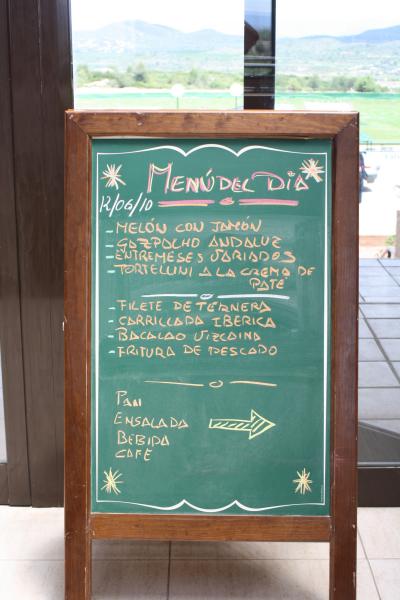 MENÚ DEL DIA
12/06/10
- MELÓN CON JAMÓN
- GAZPACHO ANDALUZ
- ENTREMESES VARIADOS
- TORTELLINI A LA CREMA DE
PATÉ
- FILETE DE TERNERA
- CARRILLADA IBERICA
- BACALAO VIZCAINA
- FRITURA DE PESCADO
PAN
ENSALADA
BEBIDA
CAFÉ